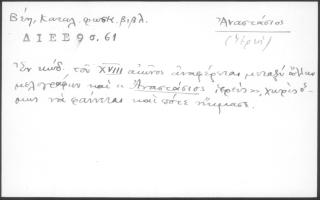 Βέη, Καταλ. φωτ. βιβλ.
ΔΙΕΕ 9 σ. 61
Ἀναστάσιος
Ἐν κώδ. τοῦ XVIII αἰῶνος ἀναφέρεται μεταξύ ἄλλων
μελογράφων καὶ ὁ Ἀναστάσιος ἱερεύς, χωρὶς ὅ-
μως νὰ φαίνεται καὶ πότε ἤκμασε.